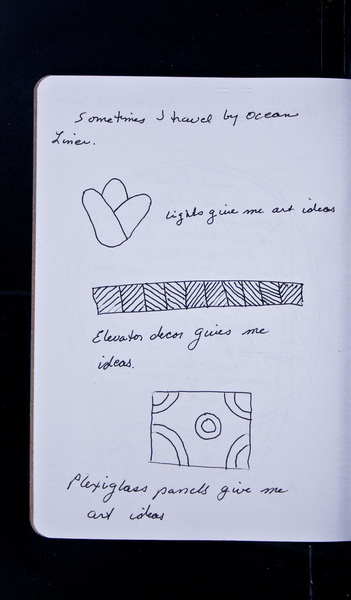 Sometimes I travel by ocean
Liner.
Lights give me art ideas
Elevator decor gives me
ideas.
Plexiglass panels give me
art ideas